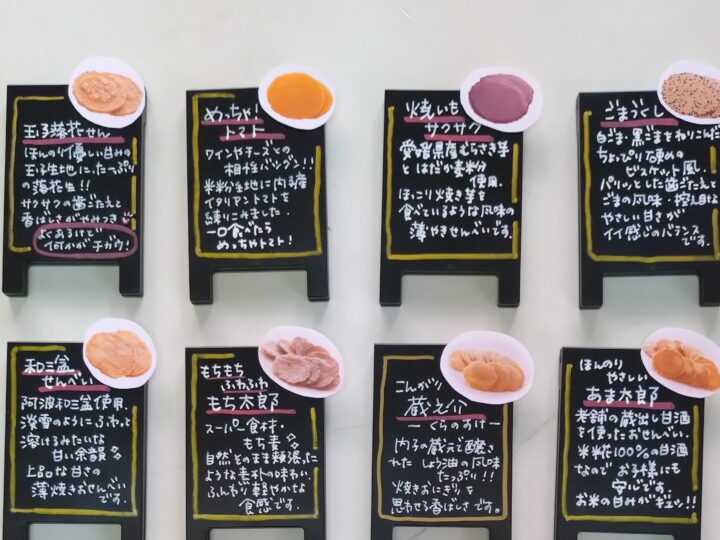 玉子落花せん
ほんのり優しい甘みの
玉子生地に、たっぷり
の落花生!!
サクサクの歯ごたえと
香ばしさがやみつき
よくあるけど
何かがチガウ!
めっちゃ!
トマト
ワインやチーズとの
相性バツグン!!
米粉生地に内子産
イタリアントマトを
練りこみました.
一口食べたら
めっちゃトマト!
焼いも
サクサク
愛媛県産むらさき芋
とはだか麦粉
使用.
ほっこり焼き芋を
食べているような風味の
薄やきせんべいです.
ごまづくし
白ごま・黒ごまをねりこんだ
ちょっぴり硬めの
ビスケット風.
パリッとした歯ごたえと
ごまの風味・控え目な
やさしい甘さが
イイ感じのバランス
です.
和三盆
せんべい
阿波和三盆使用.
淡雪のようにふわっと
溶けるみたいな
甘い余韻
上品な甘さの
薄焼きおせんべい
です.
もちもち
ふわふわ
もち太郎
スーパー食材・
もち麦
自然をそのまま頬張った
ような素朴の味わい.
ふんわり軽やかな
食感です.
こんがり
蔵之介
ーくらのすけー
内子の蔵元で醸さ
れた しょう油の風味
たっぷり!!
焼きおにぎりを
思わせる香ばしさです。
ほんのり
やさしい
あま太郎
老舗の蔵出し甘酒
を使ったおせんべい.
米糀100%の甘酒
なので お子様にも
安心です.
お米の甘みがギュッ!!